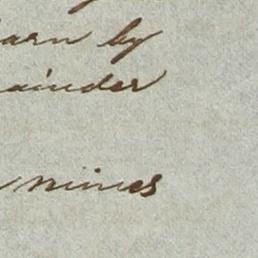 arn by
ainder
mines